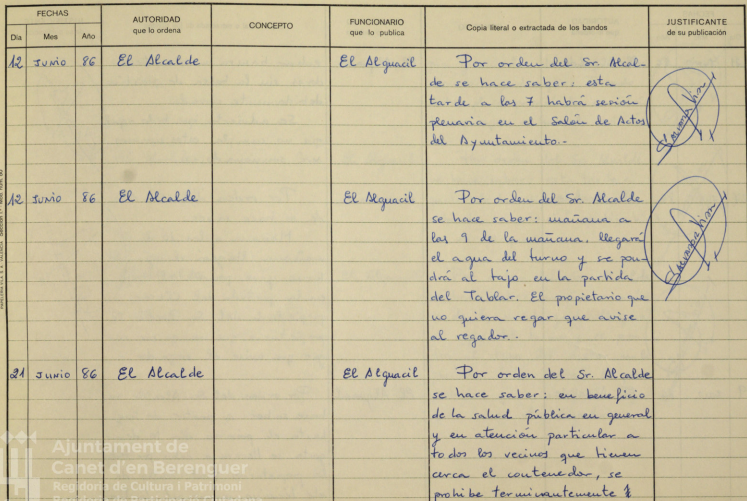 FECHAS
AUTORIDAD
que lo ordena
CONCEPTO
FUNCIONARIO
que lo publica
Copia literal o extractada de los bandos
JUSTIFICANTE
de su publicación
Día Mes Año
12 JUNIO 86 El Alcalde El Alguacil Por orden del Sr. Alcal-
de se hace saber: esta
tarde a las 7 habrá sesión
plenaria en el Salón de Actos
del Ayuntamiento.-
12 JUNIO 86 El Alcalde El Alguacil Por orden del Sr. Alcalde
se hace saber: mañana a
las 9 de la mañana, llegará
el agua del turno y se pon-
drá al tajo en la partida
del Tablar. El propietario que
no quiera regar que avise
al regador..
21 JUNIO 86 El Alcalde El Alguacil Por orden del Sr. Alcalde
se hace saber: en beneficio
de la salud pública en general
y en atención particular a
todos los vecinos que tienen
cerca el contenedor, se
prohibe terminantemente
Ajuntament de
Canet d'en Berenguer
Regidoria de Cultura i Patrimoni